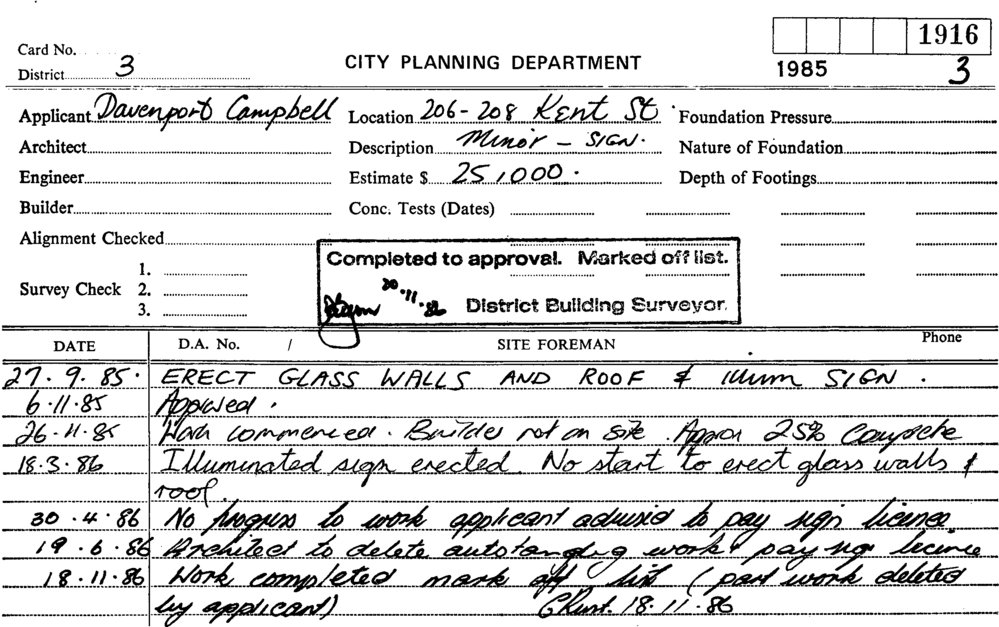 1916
Card No.
District 3
CITY PLANNING DEPARTMENT
1985 3
Applicant Davenport Campbell Location 206-208 Kent St. Foundation Pressure
Architect Description Minor - SIGN. Nature of Foundation
Engineer Estimate $ 25,000. Depth of Footings
Builder Conc. Tests (Dates)
Alignment Checked
Completed to approval. Marked off list.
1.
Survey Check 2.
3.
30.11.86
District Building Surveyor.
DATE D.A. No. / SITE FOREMAN Phone
27.9.85. ERECT GLASS WALLS AND ROOF & illum SIGN.
6.11.85 Approved.
26.11.85 Work commenced. Builder not on site. Approx 25% Complete
18.3.86 Illuminated sign erected. No start to erect glass walls &
roof.
30.4.86 No progress to work applicant advised to pay sign licence.
19.6.86 Architect to delete outstanding work & pay sign licence
18.11.86 Work completed mark off list (part work deleted
by applicant) 18.11.86